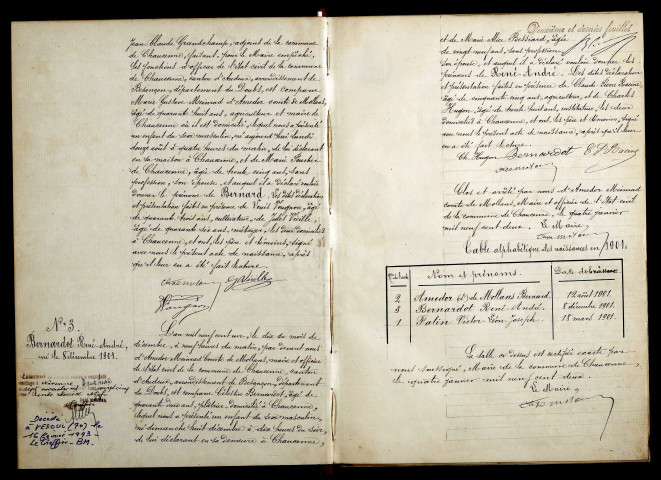 Jean Claude Grandchamp, adjoint de la commune
de Chaucenne, faisant pour le Maire empêché,
les fonctions d'officier de l'état civil de la commune
de Chaucenne, canton d'Audeux, arrondissement de
Besançon, département du Doubs, est comparu
Marie Gustave Meinrad d'Amedor comte de Mollans,
âgé de quarante huit ans, agriculteur et maire de
Chaucenne où il est domicilié, lequel nous a présenté
un enfant du sexe masculin, né aujourd'hui lundi
douze août à quatre heures du matin, de lui déclarant
en sa maison à Chaucenne, et de Marie
de Chaucenne, âgée de trente cinq ans, sans
profession, son épouse, et auquel il a déclaré vouloir
donner le prénom de Bernard. Les dites déclaration
et présentation faites en présence de Louis Vougnon, âgé
de quarante trois ans, cultivateur, de Jules Vieille,
âgé de quarante six ans, ménager, les deux domiciliés
à Chaucenne, et ont, les père et témoins, signé
avec nous le présent acte de naissance, après
qu'il leur en a été fait lecture.
N° 3.
Bernardot René-André,
né le 8 décembre 1901.
Décédé
à VESOUL (70) le
1993
L'an mil neuf cent un, le dix du mois de
décembre, à neuf heures du matin, par devant nous
d'Amedor Meinrad Comte de Mollans, maire et officier
de l'état civil de la commune de Chaucenne, canton
d'Audeux, arrondissement de Besançon, département
du Doubs, est comparu Célestin Bernardot, âgé de
quarante deux ans, plâtrier, domicilié à Chaucenne,
lequel nous a présenté un enfant du sexe masculin,
né dimanche huit décembre à dix heures du soir,
de lui déclarant en sa demeure à Chaucenne,
Deuxième et dernier feuillet
et de Marie Alice Bessard, âgée
de vingt neuf ans, sans profession,
son épouse, et auquel il a déclaré vouloir donner les
prénoms de René André. Les dites déclaration
et présentation faites en présence de Claude Léon Racine,
âgé de cinquante cinq ans, agriculteur, et de Charles
Hugon, âgé de trente huit ans, instituteur, les deux
domiciliés à Chaucenne, et ont, les père et témoins, signé
avec nous le présent acte de naissance, après qu'il leur
en a été fait lecture.
Ch. Hugon Bernardot C L Racine
Clos et arrêté par nous d'Amedor Meinrad
comte de Mollans, Maire et officier de l'état civil
de la commune de Chaucenne, le quatre janvier
mil neuf cent deux. Le Maire,
Table alphabétique des naissances en 1901.
Nom et prénoms. Date de la naissance
2 Amedor (d') de Mollans Bernard. 12 août 1901.
3 Bernardot René-André. 8 décembre 1901.
1 Patin Victor Léon Joseph. 18 mars 1901.
La table ci-dessus est certifiée exacte par
nous soussigné, Maire de la commune de Chaucenne,
le quatre janvier mil neuf cent deux.
Le Maire,